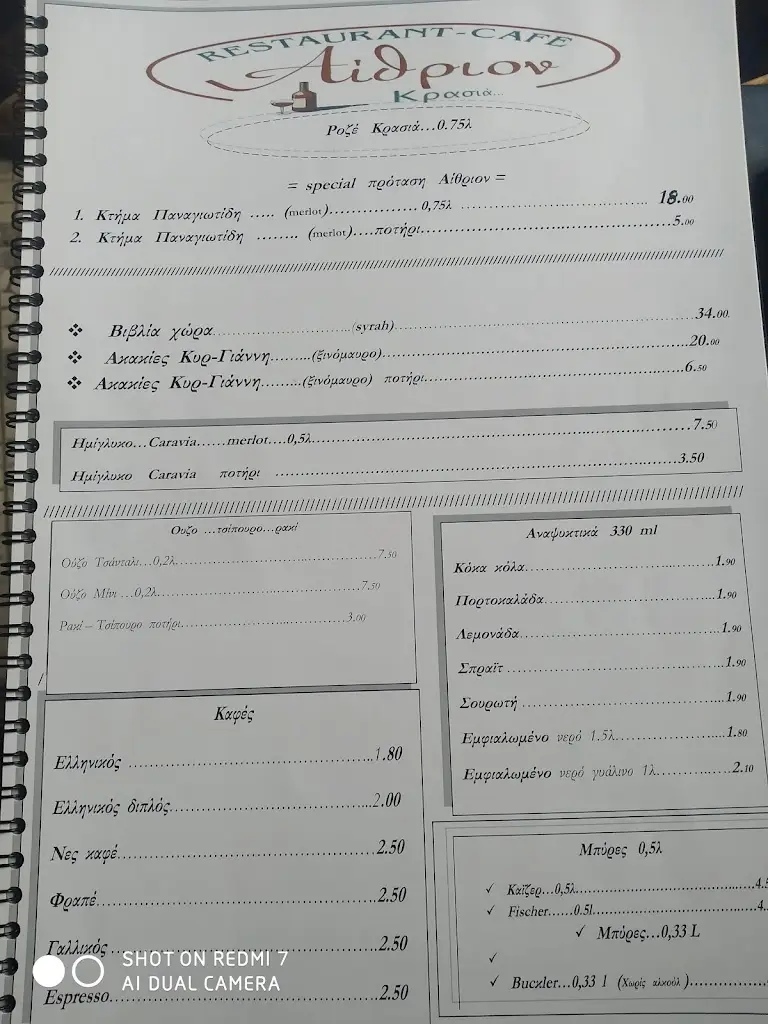 RESTAURANT-CAFE
Αίθριον
Κρασιά...
Ροζέ Κρασιά...0.75λ
= special πρόταση Αίθριον =
1. Κτήμα Παναγιωτίδη ..... (merlot)................ 0,75λ ........................ 18.00
2. Κτήμα Παναγιωτίδη ........ (merlot)....ποτήρι..........................................5.00
❖ Βιβλία χώρα..........................(syrah)..........................................34.00.
❖ Ακακίες Κυρ-Γιάννη.........(ξινόμαυρο)..........................................20.00
❖ Ακακίες Κυρ-Γιάννη.........(ξινόμαυρο) ποτήρι....................................6.50
Ημίγλυκο...Caravia......merlot....0,5λ..........................................7.50
Ημίγλυκο Caravia ποτήρι ..........................................3.50
Ουζο ...τσίπουρο...ρακί
Ούζο Τσάνταλι...0,2λ....................................7.50
Ούζο Μίνι ...0,2λ....................................7.50
Ρακί – Τσίπουρο ποτήρι..............................3.00
Καφές
Ελληνικός ....................................1.80
Ελληνικός διπλός..............................2.00
Νες καφέ....................................2.50
Φραπέ....................................2.50
Γαλλικός ....................................2.50
Espresso....................................2.50
Αναψυκτικά 330 ml
Κόκα κόλα..............................1.90
Πορτοκαλάδα..............................1.90
Λεμονάδα..............................1.90
Σπραϊτ ..............................1.90
Σουρωτή ..............................1.90
Εμφιαλωμένο νερό 1.5λ....................1.80
Εμφιαλωμένο νερό γυάλινο 1λ..............2.10
Μπύρες 0,5λ
✓ Καϊζερ...0,5λ..............................4.5
✓ Fischer......0.5l..............................4.
✓ Μπύρες...0,33 L
✓
✓ Buckler...0,33 l (Χωρίς αλκοόλ)..............
SHOT ON REDMI 7
AI DUAL CAMERA